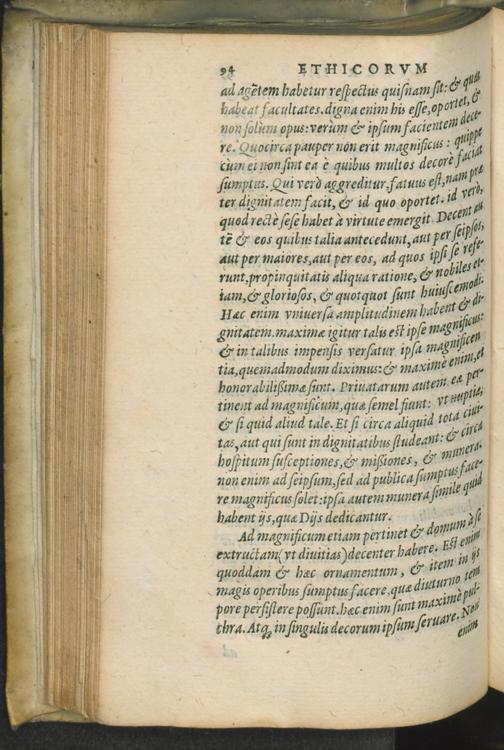 94 ETHICORVM
ad agētem habetur respectus quisnam sit: & quas
habeat facultates. digna enim his esse, oportet, &
non solùm opus: verùm & ipsum facientem dece-
re. Quocirca pauper non erit magnificus: quippe
cùm ei non sint ea è quibus multos decorè faciat
sumptus. Qui verò aggreditur, fatuus est, nam præ
ter dignitatem facit, & id quo oportet. id verò,
quod rectè sese habet à virtute emergit. Decent au
tē & eos quibus talia antecedunt, aut per seipsos,
aut per maiores, aut per eos, ad quos ipsi se refe-
runt, propinquitatis aliqua ratione, & nobiles et-
iam, & gloriosos, & quotquot sunt huiuscemodi.
Hæc enim vniuersa amplitudinem habent & di-
gnitatem. maximè igitur talis est ipse magnificus:
& in talibus impensis versatur ipsa magnificen
tia, quemadmodum diximus: & maximè enim, et
honorabilißimæ sunt. Priuatarum autem ea per-
tinent ad magnificum, quæ semel fiunt: vt nuptiæ,
& si quid aliud tale. Et si circa aliquid tota ciui-
tas, aut qui sunt in dignitatibus studeant: & circa
hospitum susceptiones, & mißiones, & munera.
non enim ad seipsum, sed ad publica sumptus face-
re magnificus solet: ipsa autem munera simile quid
habent ijs, quæ Dijs dedicantur.
Ad magnificum etiam pertinet & domum à se
extructam (vt diuitias) decenter habere. Est enim
quoddam & hæc ornamentum, & item in ijs
magis operibus sumptus facere, quæ diuturno tem
pore persistere possunt. hæc enim sunt maximè pul-
chra. Atq; in singulis decorum ipsum seruare. Non
enim